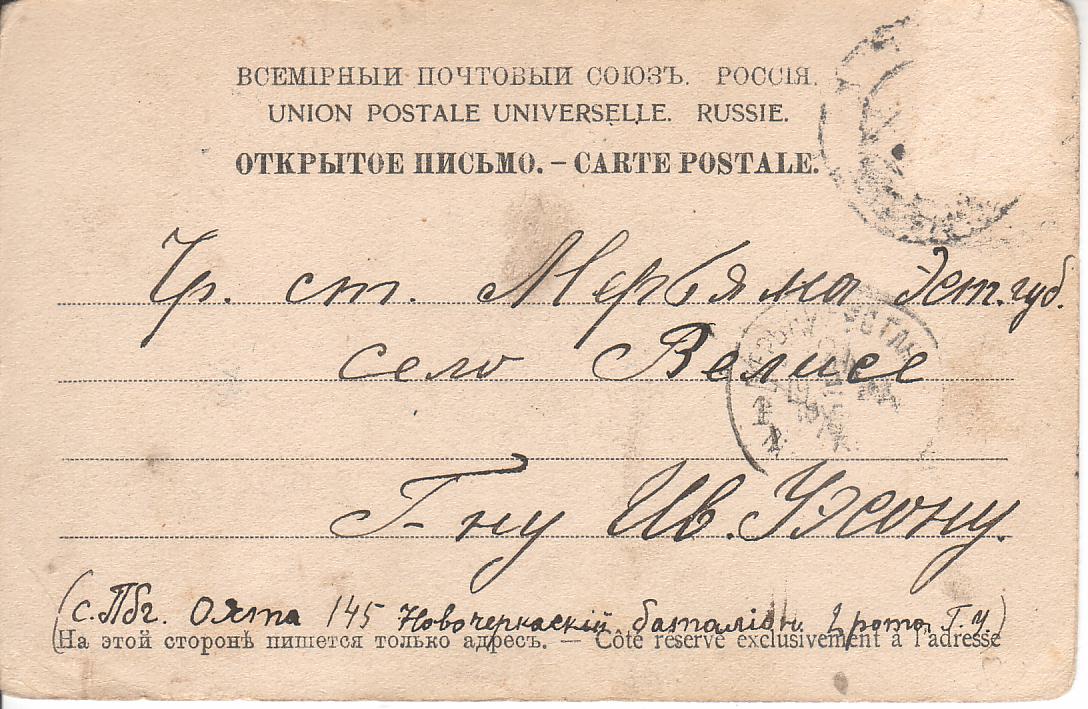 ВСЕМІРНЫЙ ПОЧТОВЫЙ СОЮЗЪ. РОССІЯ.
UNION POSTALE UNIVERSELLE. RUSSIE.
ОТКРЫТОЕ ПИСЬМО. – CARTE POSTALE.
Чр. ст. Мерьяма Эст. губ.
село Велисе
Г-ну Ив. Ужону.
(с. Пбг. Охта 145 Новочеркаскій баталіон. рота
На этой сторонѣ пишется только адресъ. — Côté réservé exclusivement à l'adresse